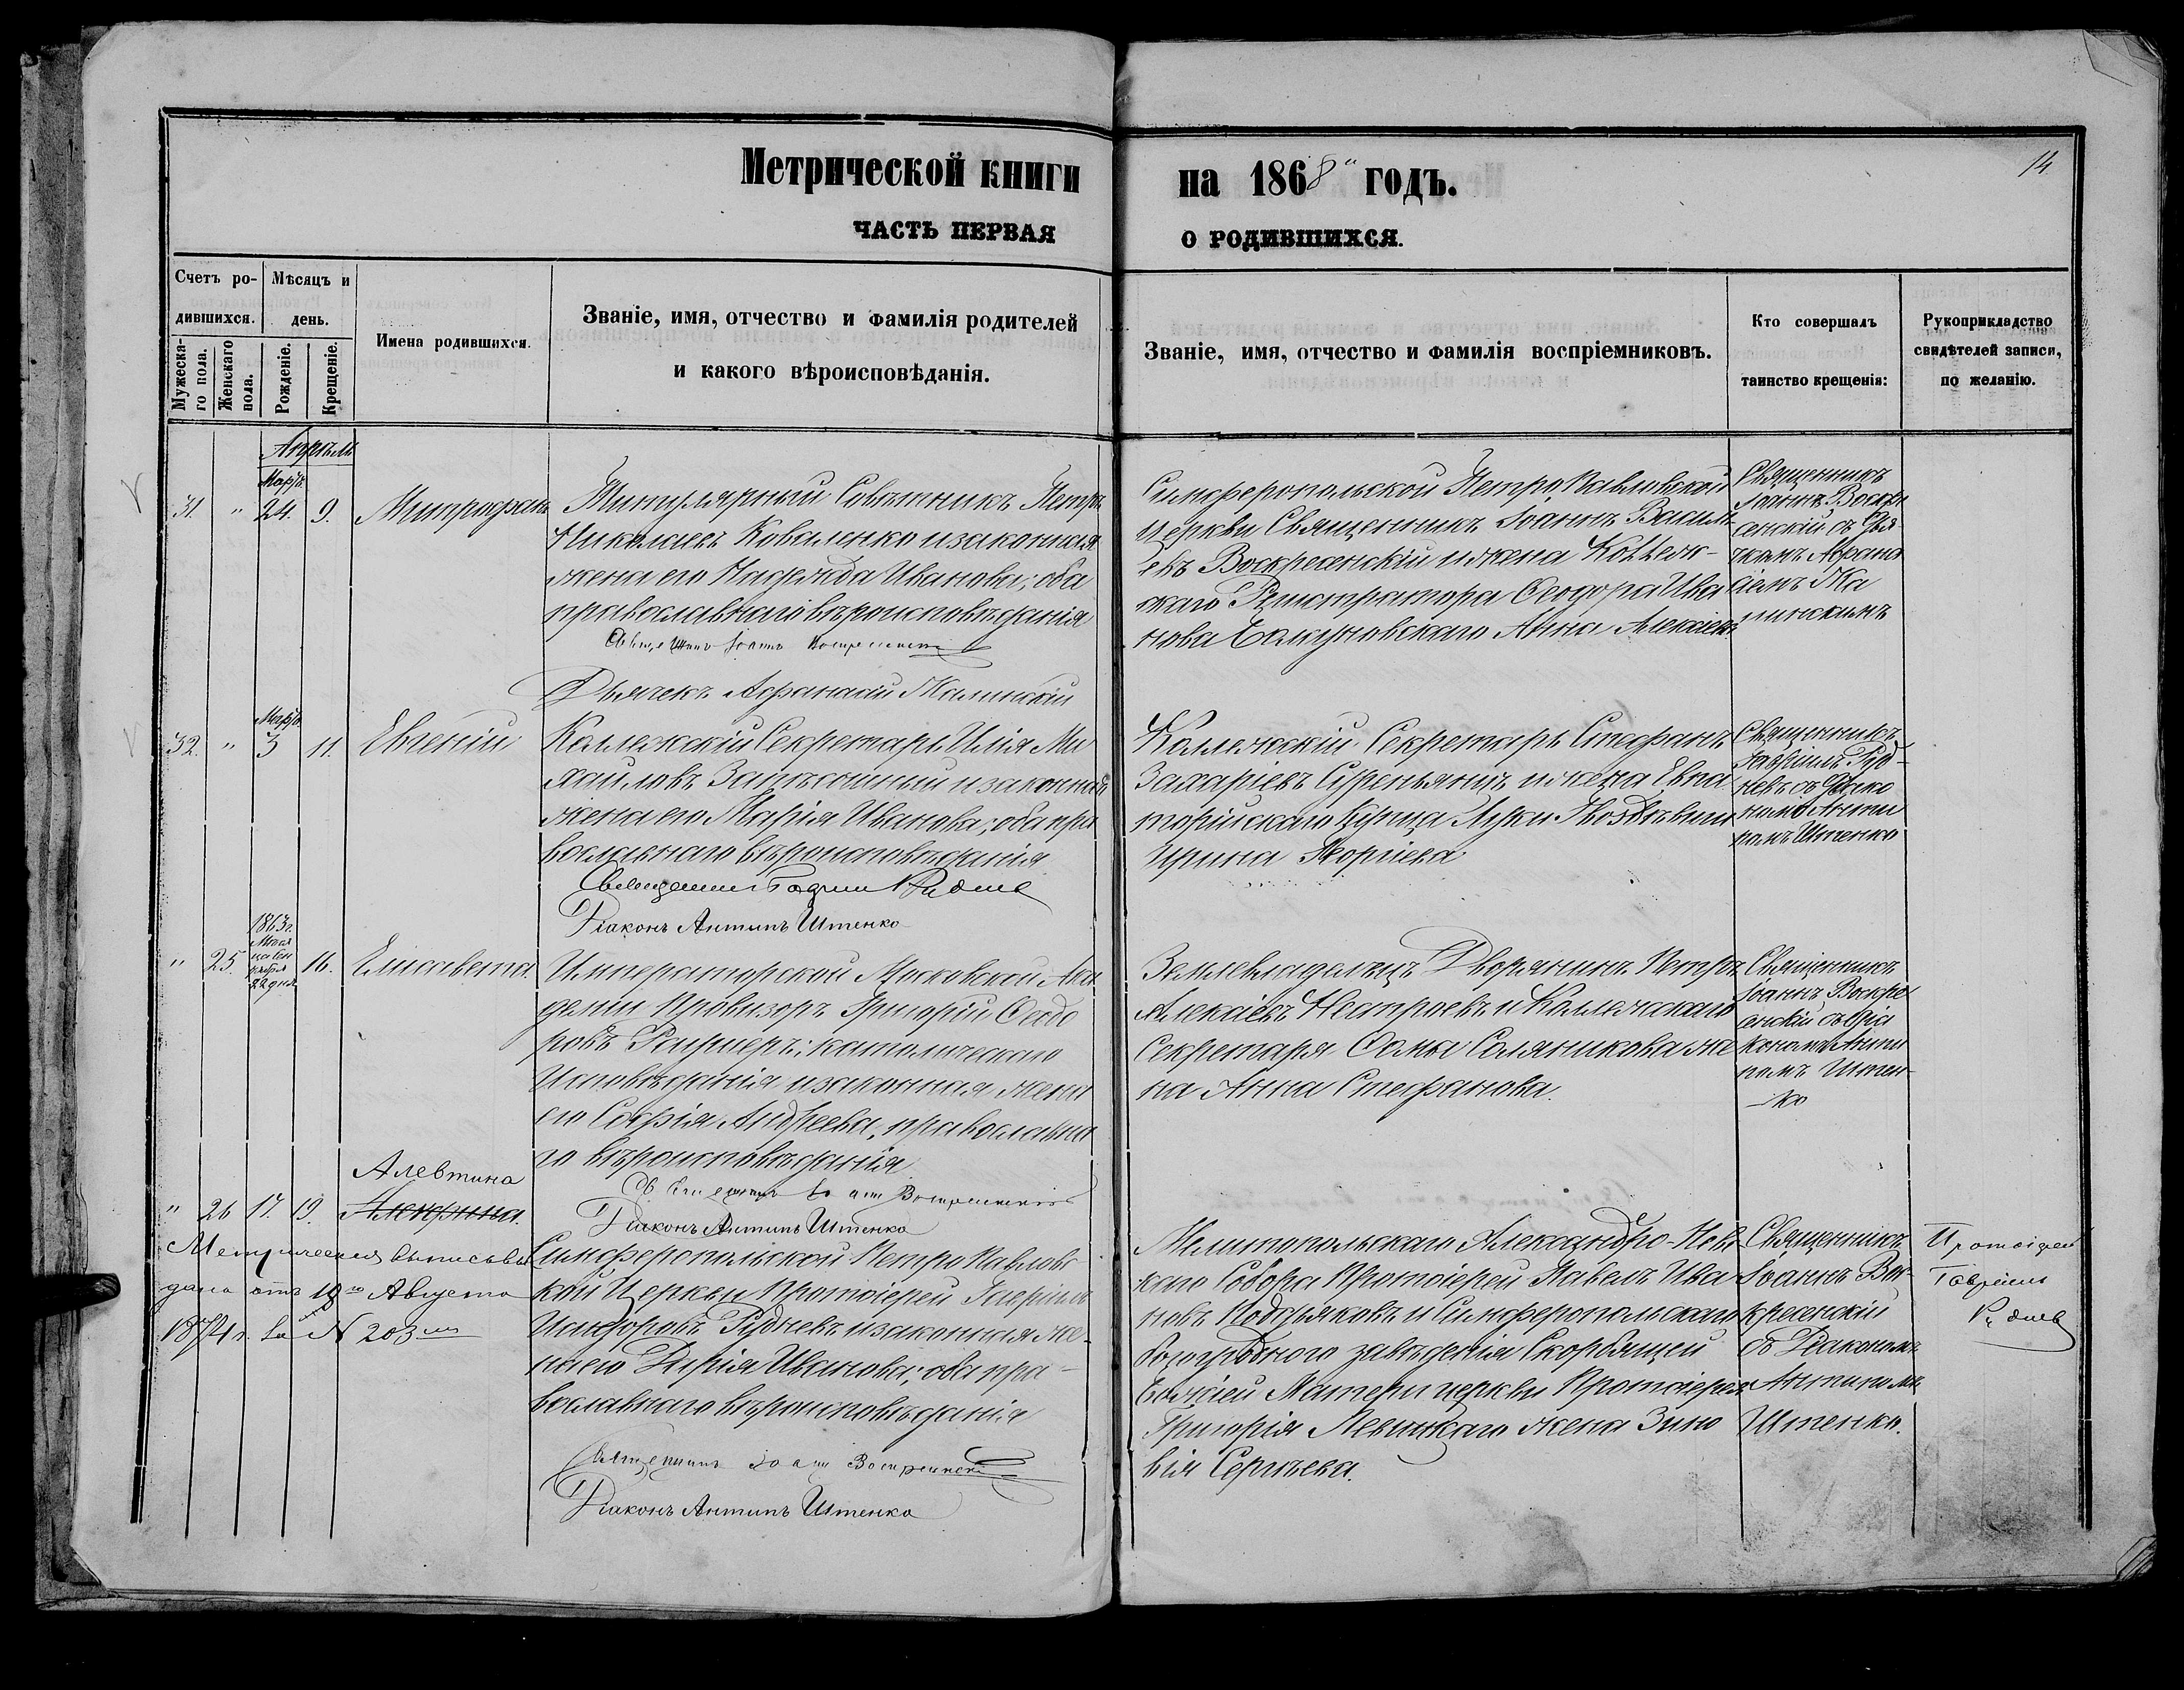 Метрической книги на 1868 годъ.
14
ЧАСТЬ ПЕРВАЯ О РОДИВШИХСЯ.
Счетъ ро-
дившихся.
Мужеска-
го пола.
Женскаго
пола.
Мѣсяцъ и
день.
Рожденіе.
Крещеніе.
Имена родившихся.
Званіе, имя, отчество и фамилія родителей
и какого вѣроисповѣданія.
Званіе, имя, отчество и фамилія воспріемниковъ.
Кто совершалъ
таинство крещенія:
Рукоприкладство
свидѣтелей записи,
по желанію.
Апрѣль
Мартъ
31. " 24. 9. Митрофанъ
Титулярный Совѣтникъ Петръ
Николаевъ Коваленко и законная
жена его Надежда Иванова; оба
православнаго вѣроисповѣданія
Священникъ Іоаннъ Воскресенскій
Дьячекъ Афанасій Калинскій
Симферопольской Петро-Павловской
Церкви Священникъ Іоаннъ Василь-
евъ Воскресенскій и жена Коллеж-
скаго Регистратора Ѳеодора Ива
нова Анна Алексіева
Священникъ
Іоаннъ Воскре
сенскій съ Дья-
чкомъ Афанас
іемъ Ка
линскимъ
Мартъ
32. " 3 11. Евгеній
Коллежскій Секретарь Илія Ми
хайловъ и законная
жена его Марія Иванова; оба пра
вославнаго вѣроисповѣданія
Священникъ Гавріилъ Рудневъ
Діаконъ Антипъ Штенко
Коллежскій Секретарь Стефанъ
Захаріевъ и жена Евпа
торійскаго Купца Луки
Ирина
Священникъ
Гавріилъ Руд-
невъ съ Діако
номъ Анти
помъ Штенко
1863 г.
" 25. 22 дня 16. Елисавета.
Императорской Московской Ака
деміи Провизоръ Григорій Ѳеодо
ровъ католическаго
Исповѣданія и законная жена
его Софія Андреева, православна
го вѣроисповѣданія
Священникъ Іоаннъ Воскресенскій
Діаконъ Антипъ Штенко
Землевладѣлецъ Дворянинъ Петръ
Алексіевъ Нестроевъ и Коллежскаго
Секретаря Сомы Соляникова же
на Анна Стефанова.
Священникъ
Іоаннъ Воскре
сенскій съ Діа
кономъ Анти
помъ Штен-
ко
Алевтина
" 26 17. 19.
Метрическая выписъ
дана отъ 18го Августа
1874 г. за № 203
Симферопольской Петро-Павловс
кой Церкви Протоіерей Гавріилъ
Исидоровъ Рудневъ и законная же-
на его Дарія Иванова; оба пра-
вославнаго вѣроисповѣданія
Священникъ Іоаннъ Воскресенскій
Діаконъ Антипъ Штенко
Мелитопольскаго Александро-Невс
каго Собора Протоіерей Павелъ Ива
новъ Поддьяковъ и Симферопольскаго
богоугоднаго заведенія Скорбящей
Божіей Матери церкви Протоіерея
Григорія Левицкаго жена Зино
вія Сергѣева.
Священникъ
Іоаннъ Вос-
кресенскій
съ Діакономъ
Антипомъ
Штенко.
Протоіерей
Гавріилъ
Рудневъ